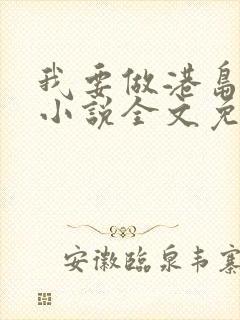 我要做港岛
小説全文免
安徽臨泉韦寨